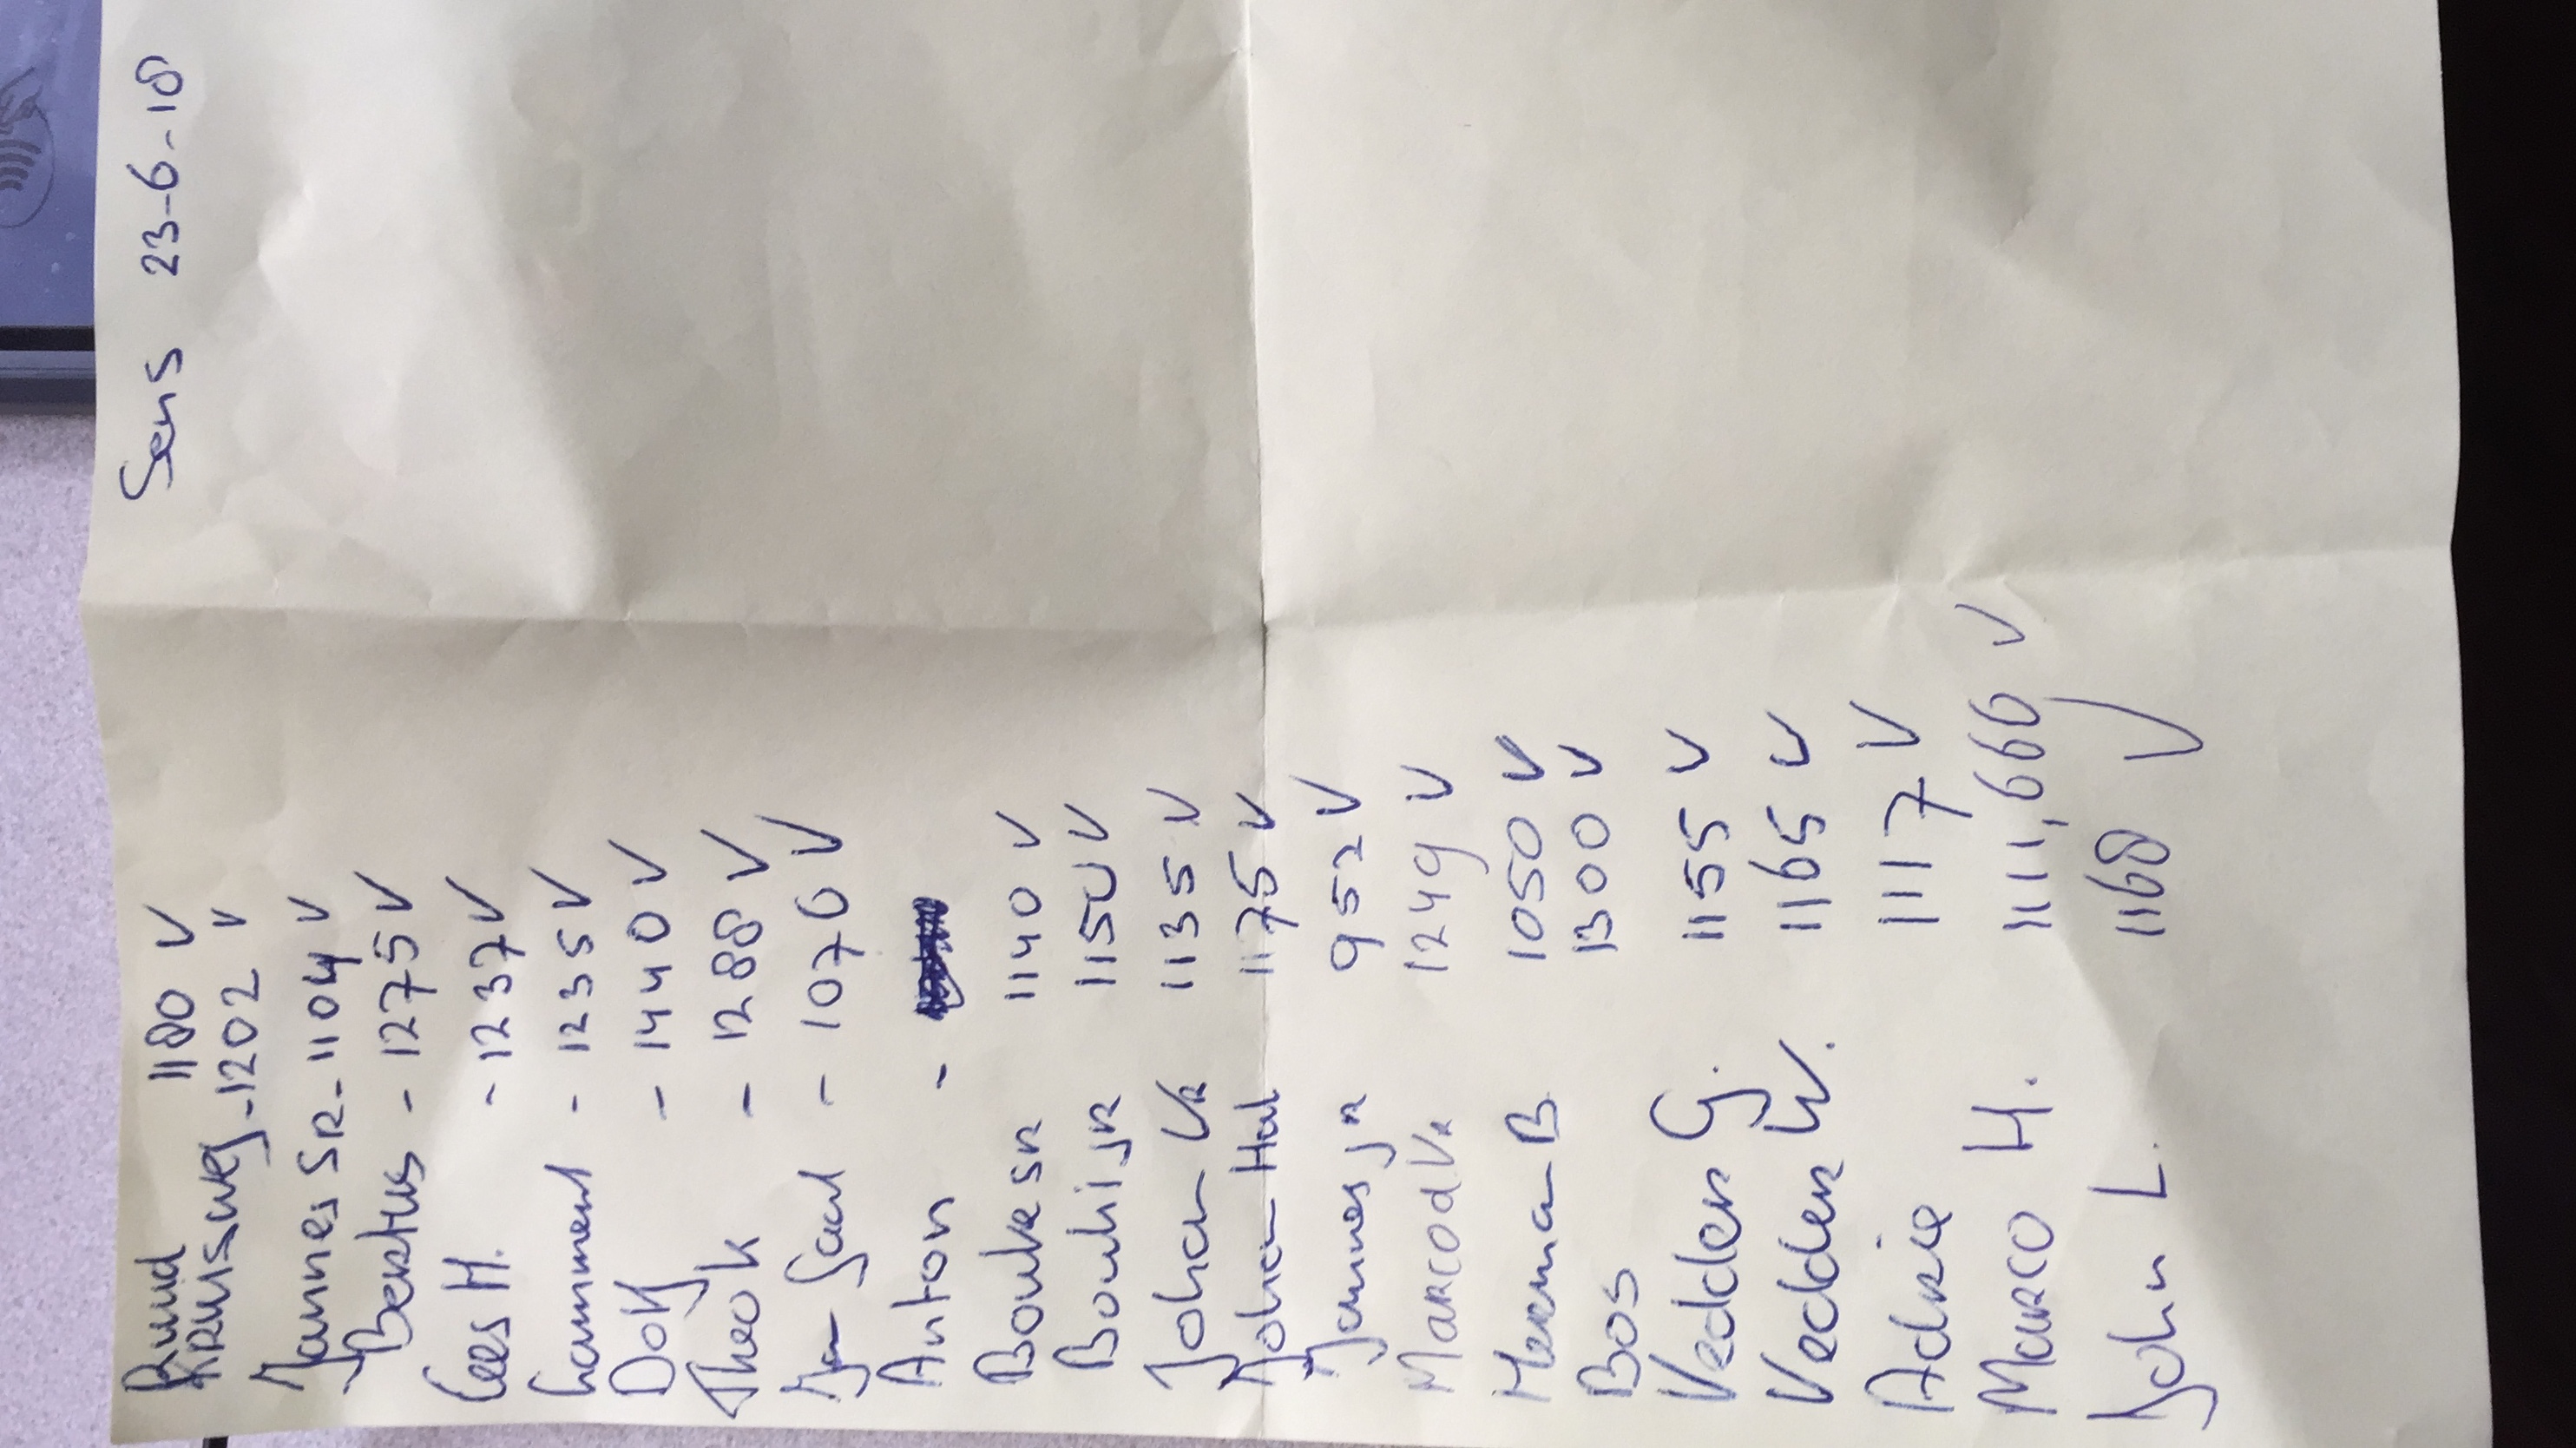 Sens 23-6-18
Ruud 1180 V
Krusweg - 1202 V
Jannes SR - 1104 V
Bertus - 1275 V
Cees H. - 1237 V
Lammert - 1235 V
Dolf - 1440 V
Theo k - 1288 V
Jan Gaal - 1076 V
Anton -
Bouke sr 1140 V
Bouki jr 1150 V
Johan VR 1135 V
Johan Hol 1175 V
Jannes jr 952 V
Marco dV. 1249 V
Herman B 1050 V
Bos 1300 V
Vedder G. 1155 V
Vedder W. 1165 V
Adrie 1117 V
Marco H. 1111,666 V
John L. 1168 V